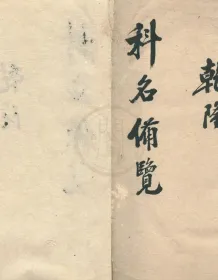 乾隆
科名俻覽